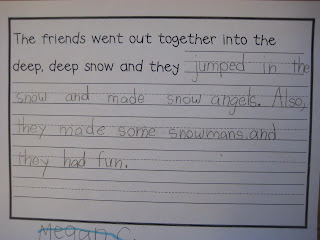 The friends went out together into the
deep, deep snow and they jumped in the
snow and made snow angels. Also,
they made some snowmans and
they had fun.
Megan C.